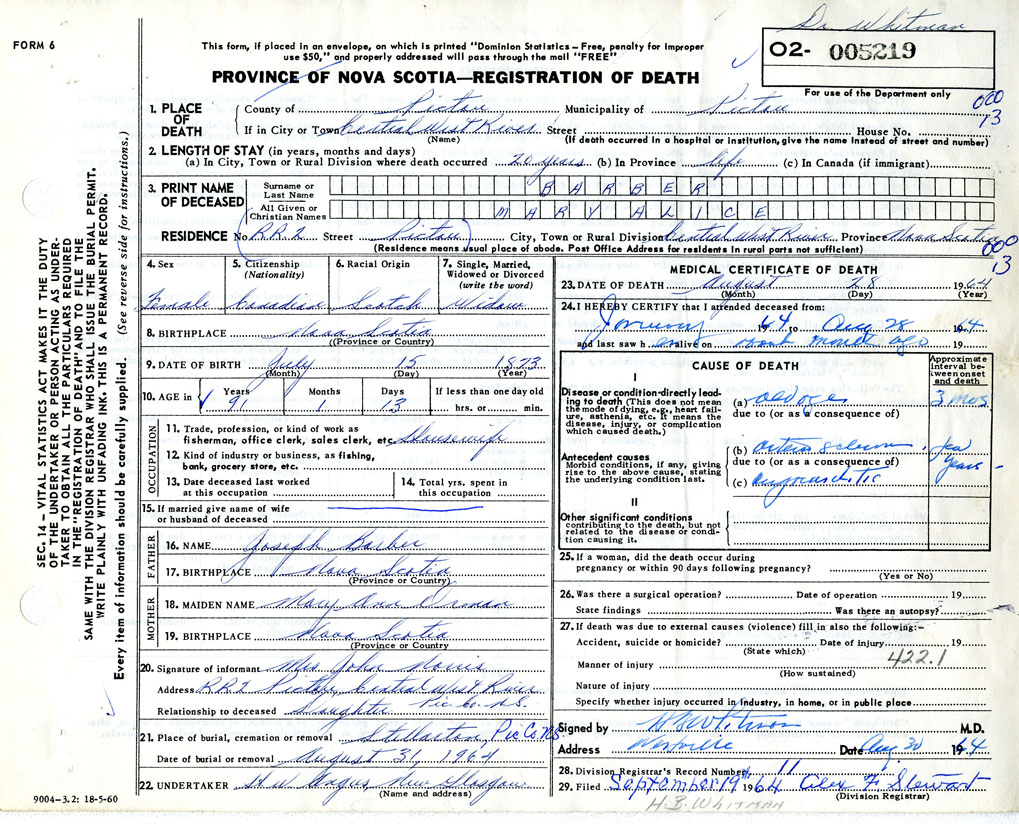 Dr Whitman
FORM 6
O2- 005219
For use of the Department only
This form, if placed in an envelope, on which is printed "Dominion Statistics – Free, penalty for improper
use $50," and properly addressed will pass through the mail "FREE"
PROVINCE OF NOVA SCOTIA—REGISTRATION OF DEATH
000
13
1. PLACE OF DEATH
County of Pictou Municipality of Pictou
If in City or Town Central West River Street House No.
(Name) (If death occurred in a hospital or institution, give the name instead of street and number)
2. LENGTH OF STAY (in years, months and days)
(a) In City, Town or Rural Division where death occurred 20 years (b) In Province life (c) In Canada (if immigrant)
3. PRINT NAME OF DECEASED
Surname or Last Name BARBER
All Given or Christian Names MARY ALICE
RESIDENCE No. R.R.2 Street Pictou City, Town or Rural Division Central West River Province Nova Scotia
(Residence means usual place of abode. Post Office Address for residents in rural parts not sufficient)
000
13
4. Sex 5. Citizenship (Nationality) 6. Racial Origin 7. Single, Married, Widowed or Divorced (write the word)
Female Canadian Scotch Widow
8. BIRTHPLACE Nova Scotia
(Province or Country)
9. DATE OF BIRTH July 15 1873
(Month) (Day) (Year)
10. AGE in Years Months Days If less than one day old
91 1 13 hrs. or min.
OCCUPATION
11. Trade, profession, or kind of work as
fisherman, office clerk, sales clerk, etc. Housewife
12. Kind of industry or business, as fishing,
bank, grocery store, etc.
13. Date deceased last worked
at this occupation
14. Total yrs. spent in
this occupation
15. If married give name of wife
or husband of deceased
FATHER
16. NAME Joseph Barber
17. BIRTHPLACE Nova Scotia
(Province or Country)
MOTHER
18. MAIDEN NAME Mary Ann
19. BIRTHPLACE Nova Scotia
(Province or Country
20. Signature of informant Mrs John Norris
Address R R 2 Pictou, Central West River
Pic Co. N.S.
Relationship to deceased Daughter
21. Place of burial, cremation or removal Stellarton, Pic Co. N.S.
Date of burial or removal August 31, 1964
22. UNDERTAKER H. W. Angus, New Glasgow
(Name and address)
MEDICAL CERTIFICATE OF DEATH
23. DATE OF DEATH August 28 1964
(Month) (Day) (Year)
24. I HEREBY CERTIFY that I attended deceased from:
January 1964 to Aug 28 1964
and last saw her alive on about month ago 19
CAUSE OF DEATH
Approximate interval between onset and death
I
Disease or condition directly leading to death (This does not mean the mode of dying, e.g., heart failure, asthenia, etc. It means the disease, injury, or complication which caused death.)
(a) old age 3 mos
due to (or as a consequence of)
Antecedent causes
Morbid conditions, if any, giving rise to the above cause, stating the underlying condition last.
(b) few years
due to (or as a consequence of)
(c)
II
Other significant conditions
contributing to the death, but not related to the disease or condition causing it.
25. If a woman, did the death occur during
pregnancy or within 90 days following pregnancy?
(Yes or No)
26. Was there a surgical operation? Date of operation 19
State findings Was there an autopsy?
27. If death was due to external causes (violence) fill in also the following:–
Accident, suicide or homicide? Date of injury 19
(State which)
422.1
Manner of injury
(How sustained)
Nature of injury
Specify whether injury occurred in industry, in home, or in public place
Signed by H B Whitman M.D.
Address Westville Date Aug 30 1964
28. Division Registrar's Record Number 11
29. Filed September 19 1964 Alex F. Stewart
(Division Registrar)
H.B. WHITMAN
SEC. 14 – VITAL STATISTICS ACT MAKES IT THE DUTY
OF THE UNDERTAKER OR PERSON ACTING AS UNDER-
TAKER TO OBTAIN ALL THE PARTICULARS REQUIRED
IN THE "REGISTRATION OF DEATH" AND TO FILE THE
SAME WITH THE DIVISION REGISTRAR WHO SHALL ISSUE THE BURIAL PERMIT.
WRITE PLAINLY WITH UNFADING INK. THIS IS A PERMANENT RECORD.
Every item of information should be carefully supplied. (See reverse side for instructions.)
9004-3.2: 18-5-60